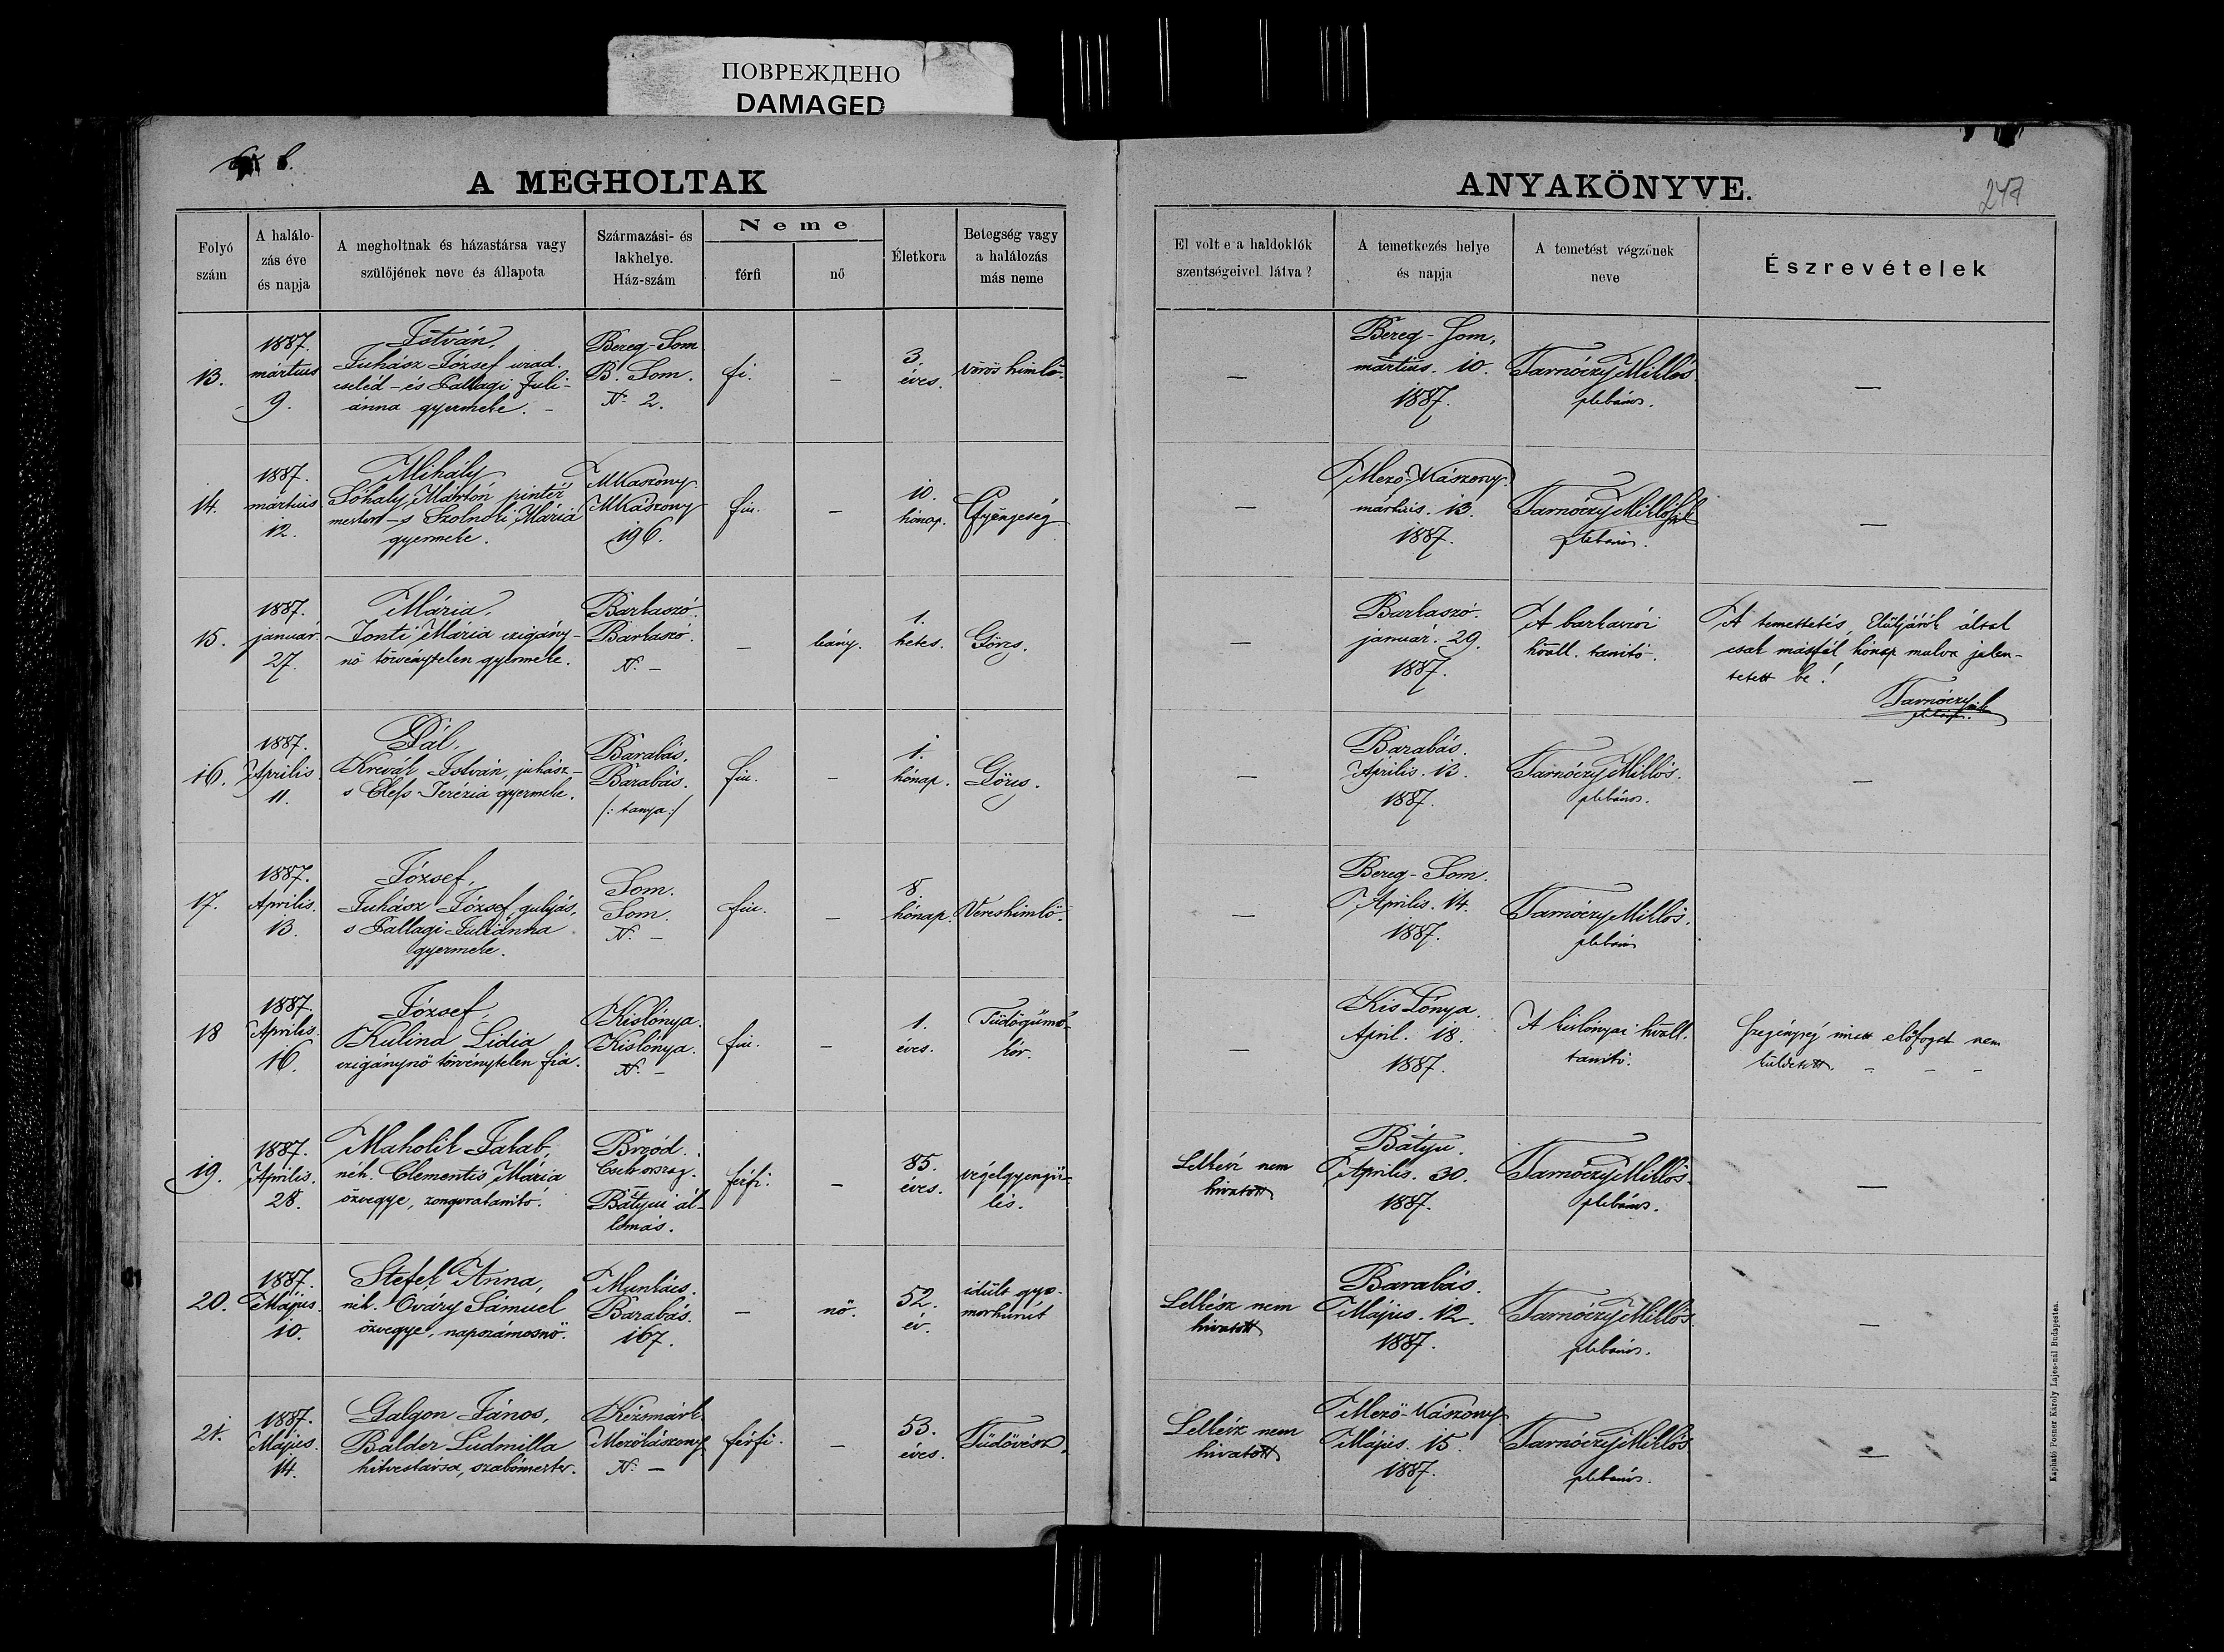 ПОВРЕЖДЕНО
DAMAGED
A MEGHOLTAK
ANYAKÖNYVE.
247
Folyó szám
A halálozás éve és napja
A megholtnak és házastársa vagy szülőjének neve és állapota
Származási- és lakhelye. Ház-szám
Neme
férfi
nő
Életkora
Betegség vagy a halálozás más neme
El volt e a haldoklók szentségeivel látva?
A temetkezés helye és napja
A temetést végzőnek neve
Észrevételek
13.
1887.
március
9.
István,
Juhász József urad.
cseléd - és Pallagi Juli-
ánna gyermeke. -
Bereg-Som
B. Som.
N. 2.
fi.
-
3.
éves.
vörös himlő.
-
Bereg-Som,
március. 10.
1887.
Tarnóczy Miklós
plebános.
-
14.
1887.
március
12.
Mihály
Sóhaly Márton pintér
mester - s Szolnoki Mária
gyermeke.
MKaszony
MKaszony
196.
fiu.
-
10.
hónap.
Gyengeség
-
Mező-Kászony.
március. 13.
1887.
Tarnóczy Miklós
plebános.
-
15.
1887.
január.
27.
Mária,
Jonti Mária czigány-
nő törvénytelen gyermeke.
Barkaszó.
Barkaszó.
N. -
-
leány.
1.
hetes.
Görcs.
-
Barkaszó.
január. 29.
1887.
A barkaszói
hvall. tanitó.
A temettetés, Elüljárók által
csak másfél hónap mulva jelen-
tetett be!
Tarnóczy
plebános.
16.
1887.
Április
11.
Pál,
Krevák István, juhász-
s Terézia gyermeke.
Barabás.
Barabás.
/: tanya :/
fiu.
-
1.
hónap.
Görcs.
-
Barabás.
Április. 13.
1887.
Tarnóczy Miklós.
plebános.
-
17.
1887.
Április.
13.
József,
Juhász József gulyás,
s Pallagi Juliánna
gyermeke.
Som.
Som.
N. -
fiu.
-
8.
hónap.
Vereshimlő.
-
Bereg-Som.
Április. 14.
1887.
Tarnóczy Miklós.
plebános
18
1887.
Április.
16.
József,
Kulina Lidia
czigánynő törvénytelen fia.
Kislónya.
Kislónya.
N. -
fiu.
-
1.
éves.
Tüdőgümő-
kór.
-
Kis Lónya.
April. 18.
1887.
A kislónyai hvall.
tanitó.
Szegénység miatt előfogat nem
küldetett. - - -
19.
1887.
Április.
28.
Maholik Jakab,
néh. Clementis Mária
özvegye, zongoratanitó.
Broód.
Csehország.
-
Bátyui ál-
lomás.
férfi.
-
85.
éves.
végelgyengü-
lés.
Lelkész nem
hivatott
Bátyu.
Április. 30.
1887.
Tarnóczy Miklós.
plebános.
-
20.
1887.
Május.
10.
Stefek Anna,
néh. Ováry Sámuel
özvegye, napszámosnő.
Munkács.
Barabás.
167.
-
nő.
52.
év.
idült gyo-
morhurut
Lelkész nem
hivatott
Barabás.
Május. 12.
1887.
Tarnóczy Miklós.
plebános.
-
21.
1887.
Május.
14.
Galgon János,
Balder Ludmilla
hitvestársa, szabómester.
Késmárk.
Mezőkászony
N. -
férfi.
-
53.
éves.
Tüdővész.
Lelkész nem
hivatott
Mező-Kászony
Május. 15.
1887.
Tarnóczy Miklós
plebános.
-
Kapható Posner Károly Lajos-nál Budapesten.